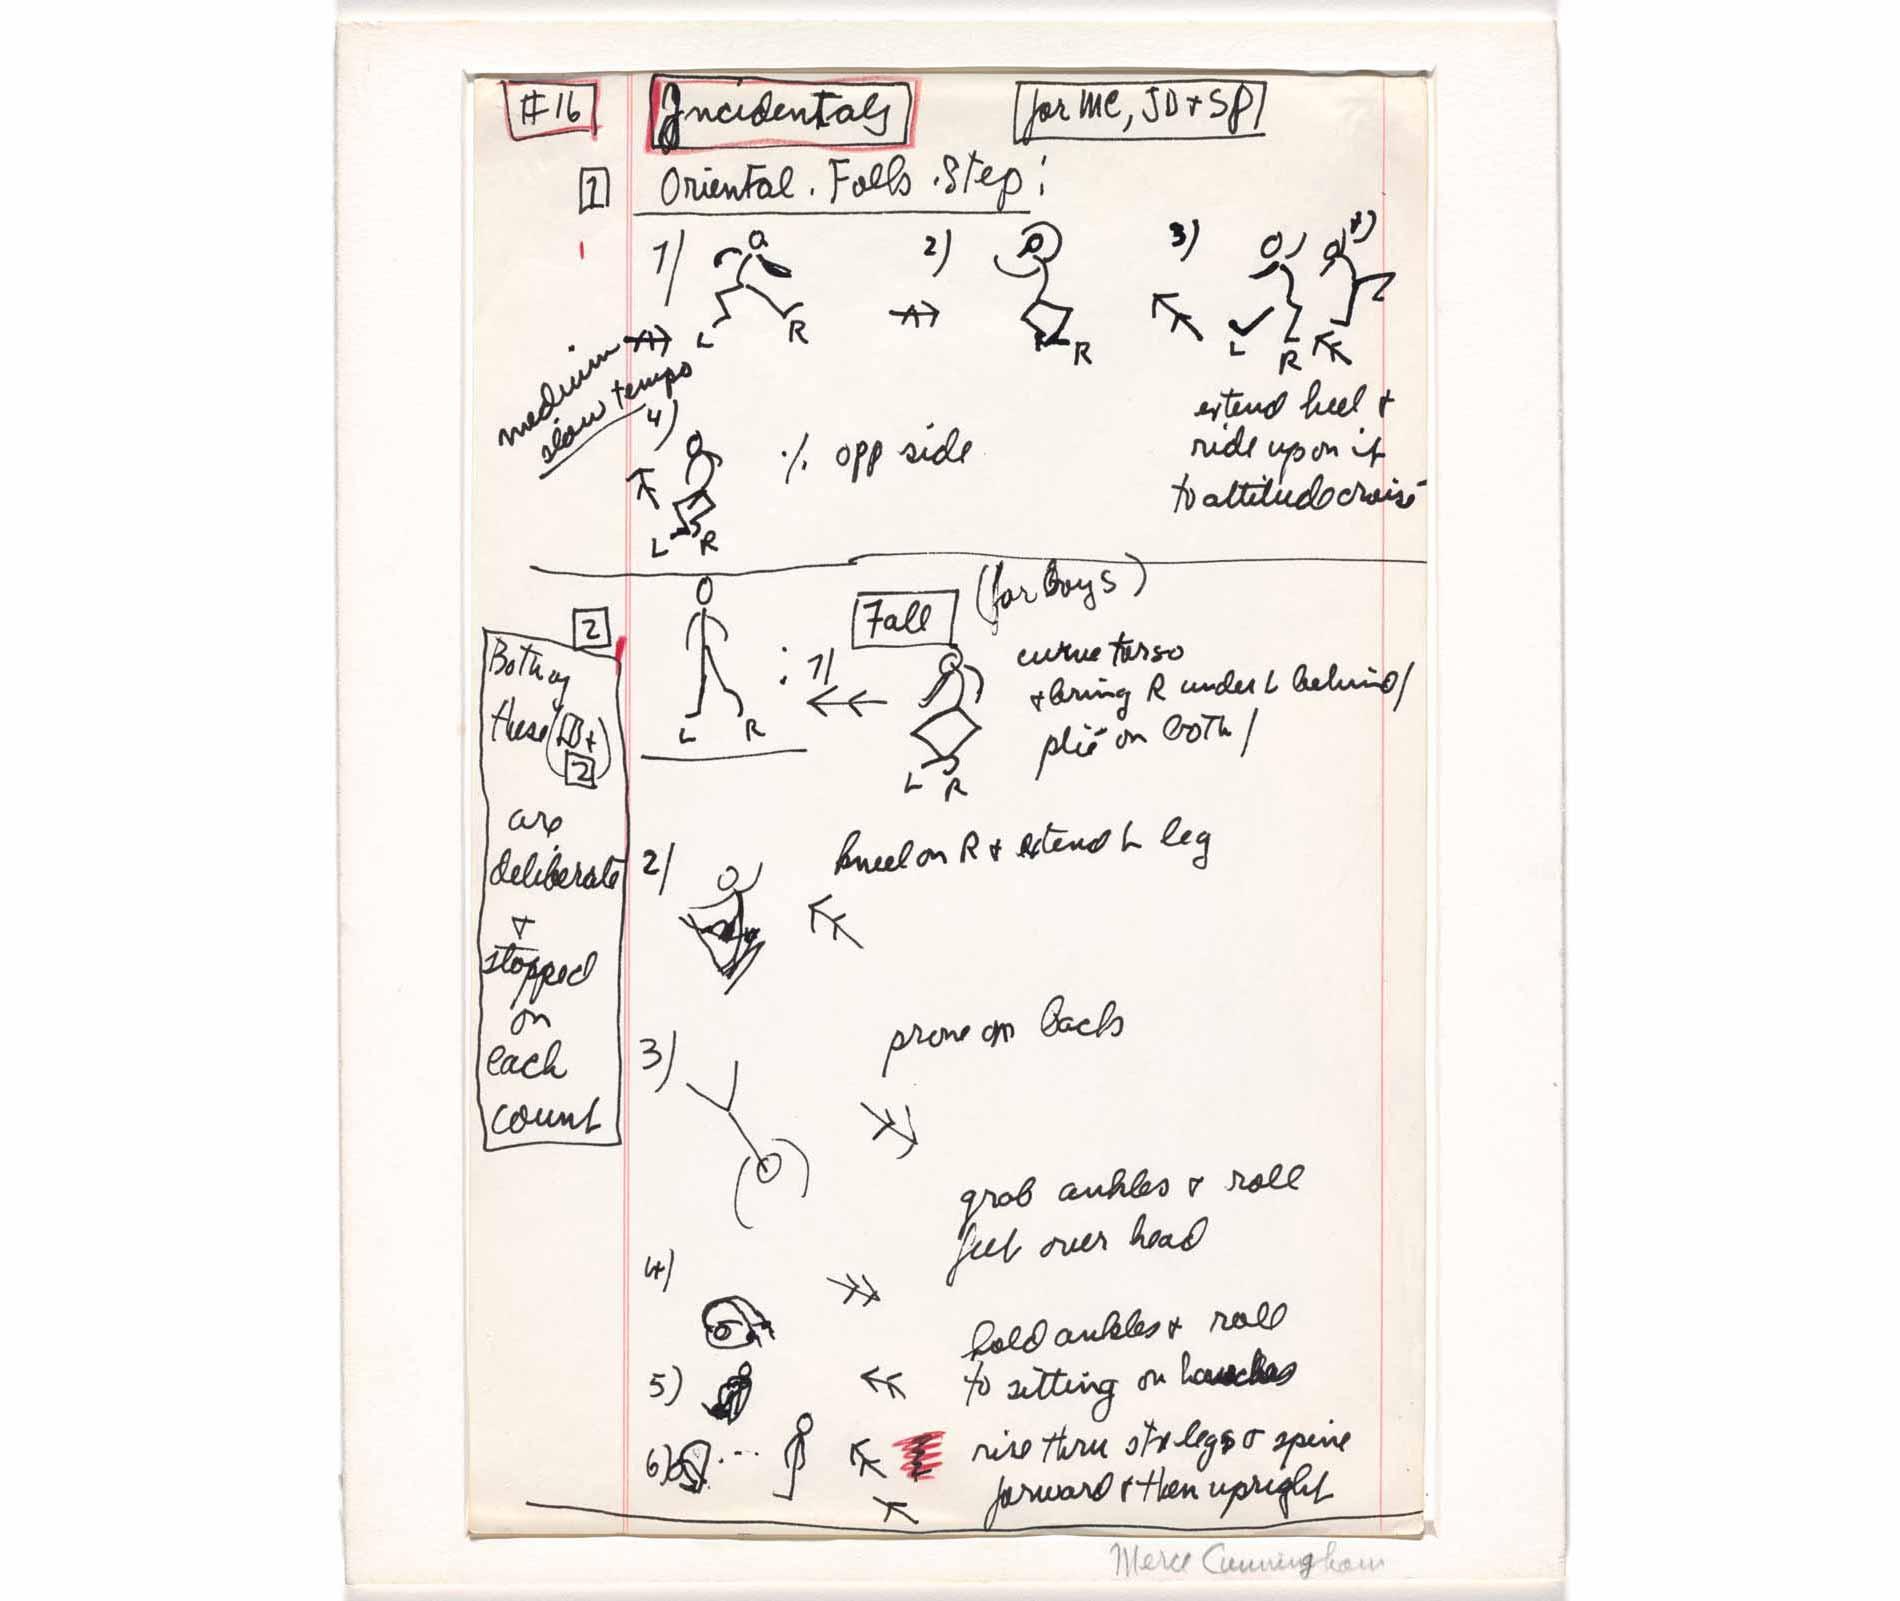 #16 Incidentals for MC, JD + SP
1 Oriental . Falls . Step :
1) 2) 3) 4)
L R R L R
medium
slow tempo
extend heel +
ride up on it
to attitude croisé
4)
·/. opp side
L R
2 Fall (for boys)
Both of
these (1 +
2)
are
deliberate
+
stopped
on
each
count
: 1)
L R
curve torso
+ bring R under L behind/
plié on both/
L R
2) kneel on R + extend L leg
3) prone on back
4) grab ankles + roll
feet over head
5) hold ankles + roll
to sitting on haunches
6) rise thru str legs + spine
forward + then upright
Merce Cunningham